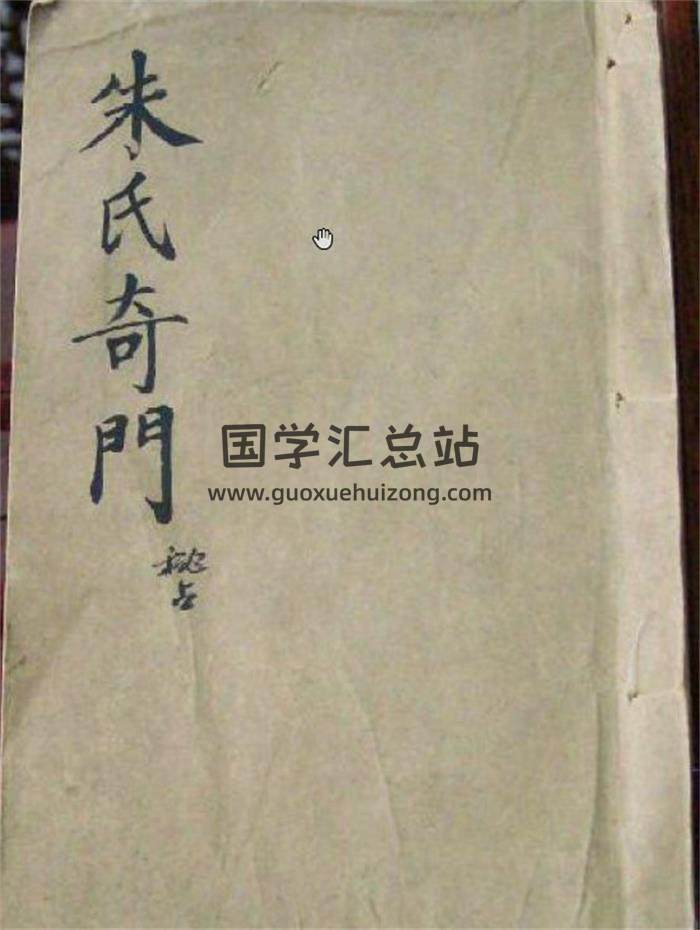 朱氏奇門
秘占
国学汇总站
www.guoxuehuizong.com